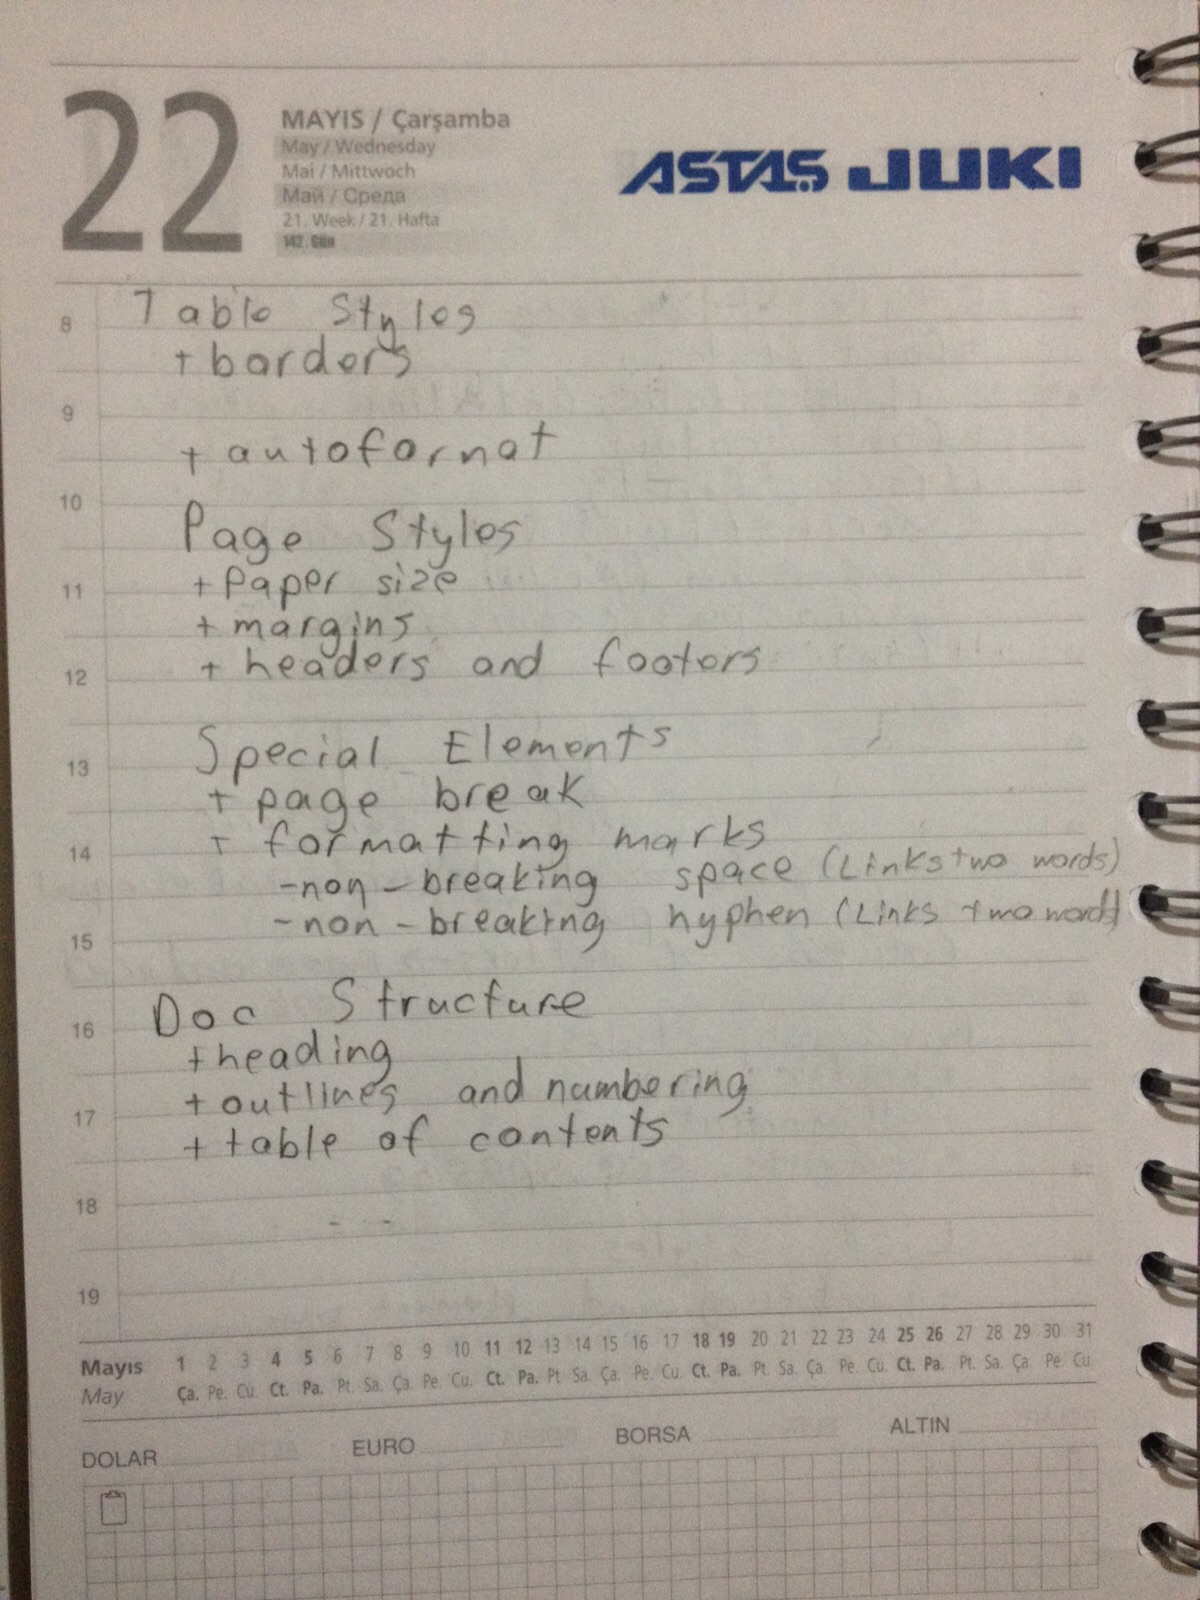 22
MAYIS / Çarşamba
May / Wednesday
Mai / Mittwoch
Май / Среда
21. Week / 21. Hafta
142. Gün
ASTAŞ JUKI
8 Table Styles
+ borders
9
+ autoformat
10
Page Styles
11 + Paper size
+ margins
12 + headers and footers
13 Special Elements
+ page break
14 + formatting marks
- non-breaking space (Links two words)
- non-breaking hyphen (Links two words)
15
16 Doc Structure
+ heading
+ outlines and numbering
17
+ table of contents
18
19
Mayıs 1 2 3 4 5 6 7 8 9 10 11 12 13 14 15 16 17 18 19 20 21 22 23 24 25 26 27 28 29 30 31
May Ça. Pe. Cu. Ct. Pa. Pt. Sa. Ça. Pe. Cu. Ct. Pa. Pt. Sa. Ça. Pe. Cu. Ct. Pa. Pt. Sa. Ça. Pe. Cu. Ct. Pa. Pt. Sa. Ça. Pe. Cu.
DOLAR EURO BORSA ALTIN